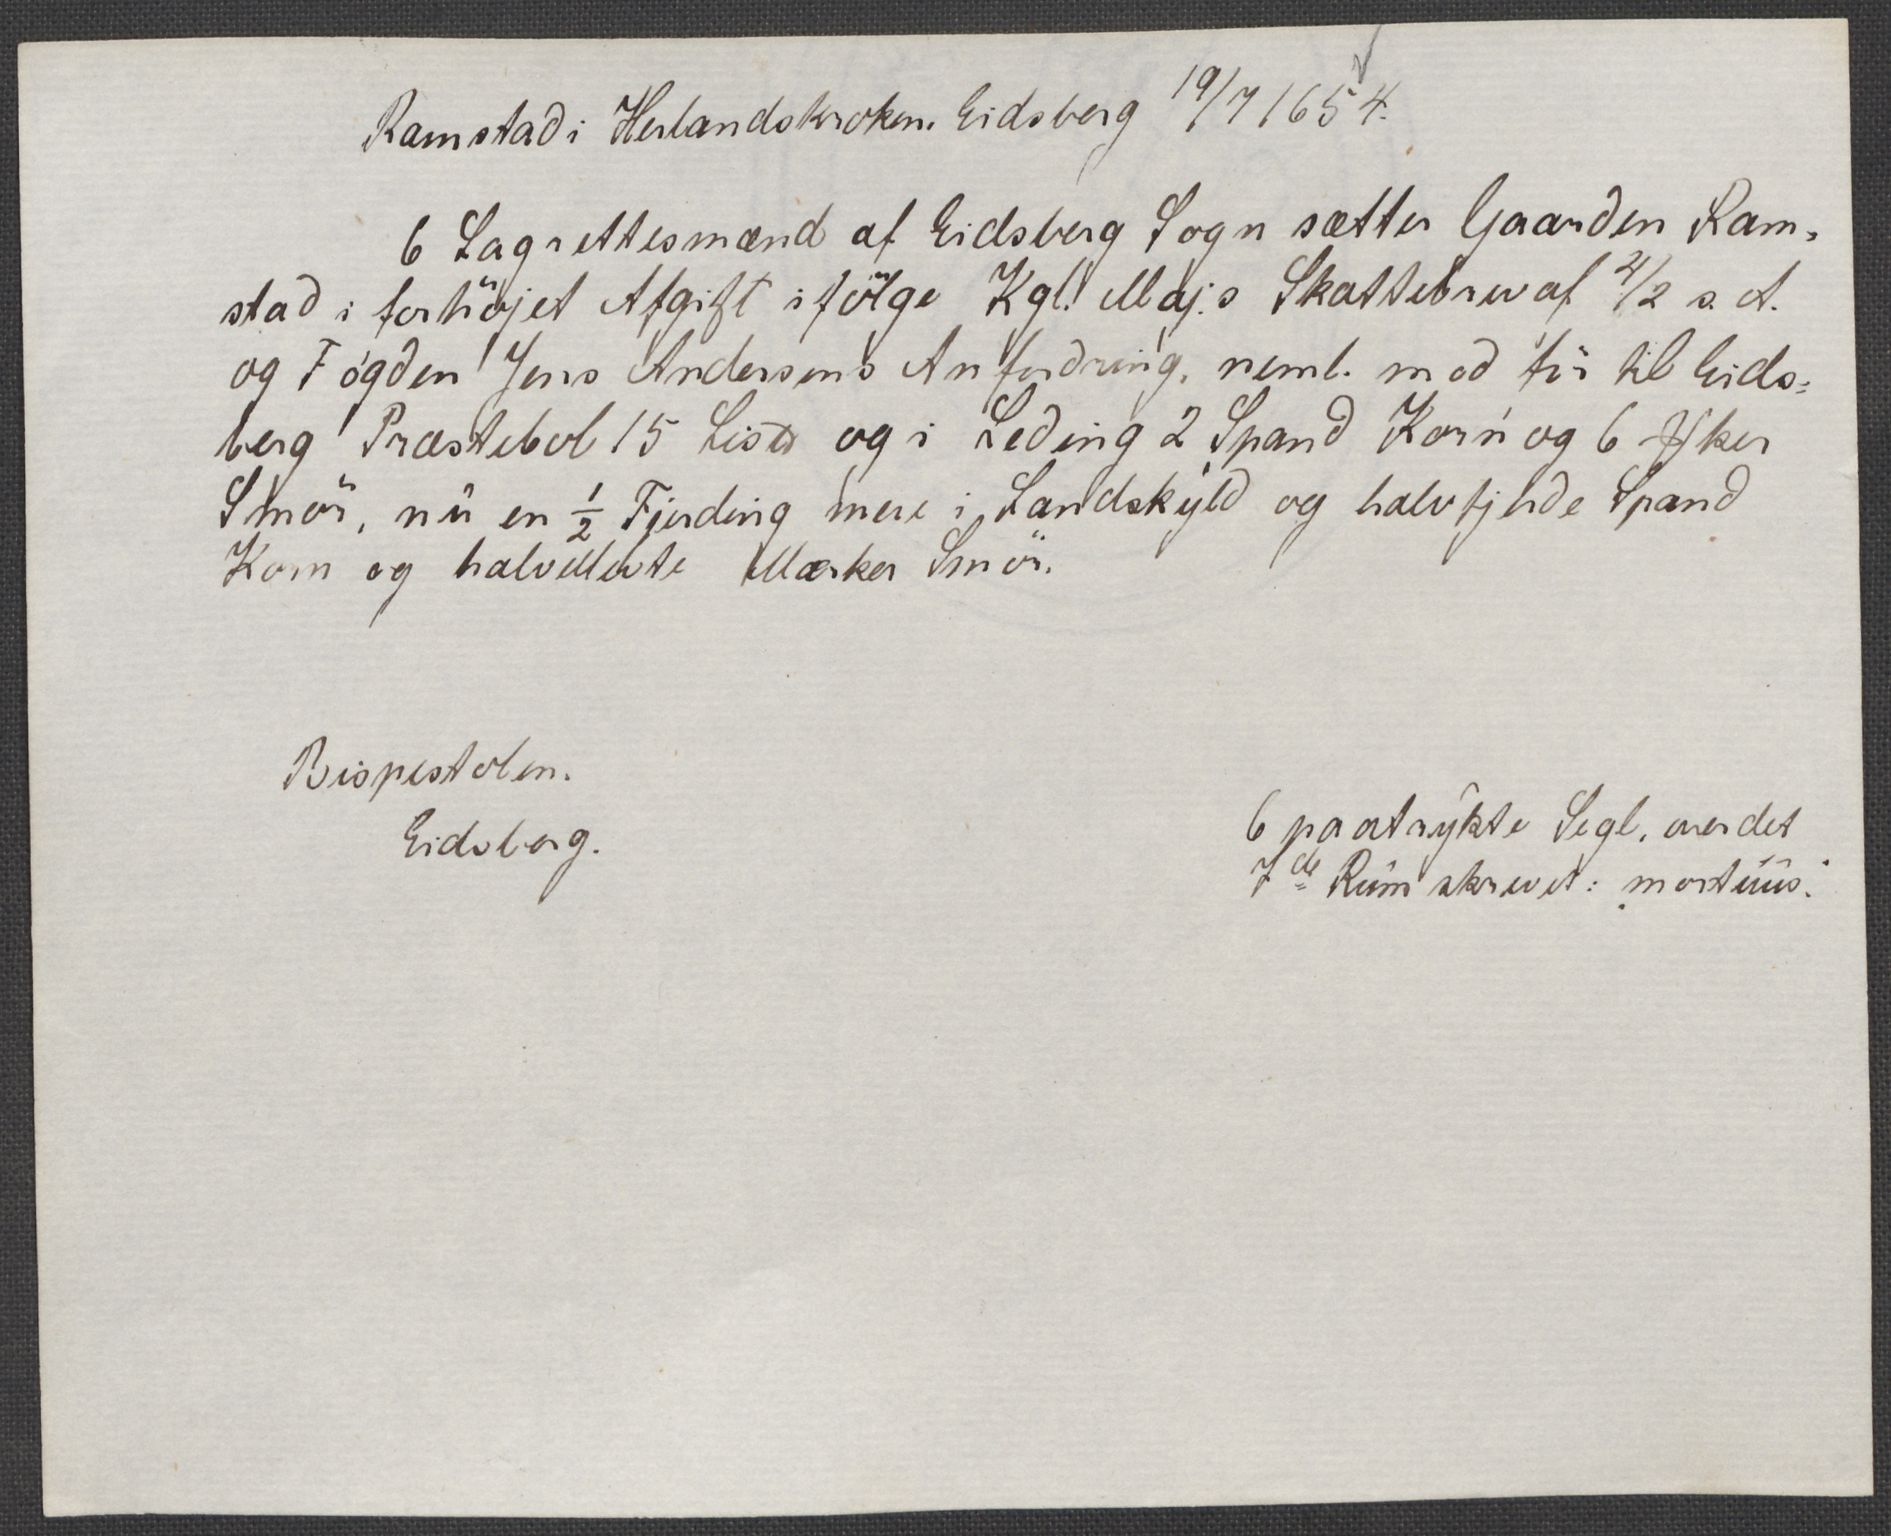 Ramstad i Herlandskroken. Eidsberg 19/7 1654.
6 Lagrettesmænd af Eidsberg Sogn sætter Gaarden Ram-
stad i forhöjet Afgift ifölge Kgl. Maj.s Skattebrev af 21/2 s. A.
og Fógden Jens Andersens Anfordring, neml. mod för til Eids-
berg Præstebol 15 Lis℔ og i Leding 2 Spand Korn og 6 ker
Smör, nú en 1/2 Fjerding mere i Landskyld og halvfjerde Spand
Korn og halvellevte Mærker Smör.
Bispestolen.
Eidsberg.
6 paatrykte Segl, over det
7de Rúm skrevet: mortúús.